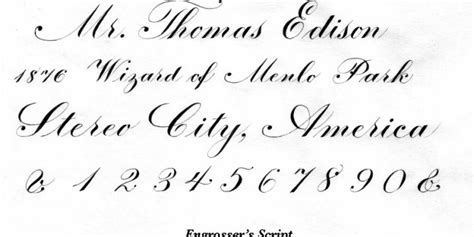 Mr. Thomas Edison
1876 Wizard of Menlo Park
Stereo City, America
& 1 2 3 4 5 6 7 8 9 0 &
Engrosser's Script